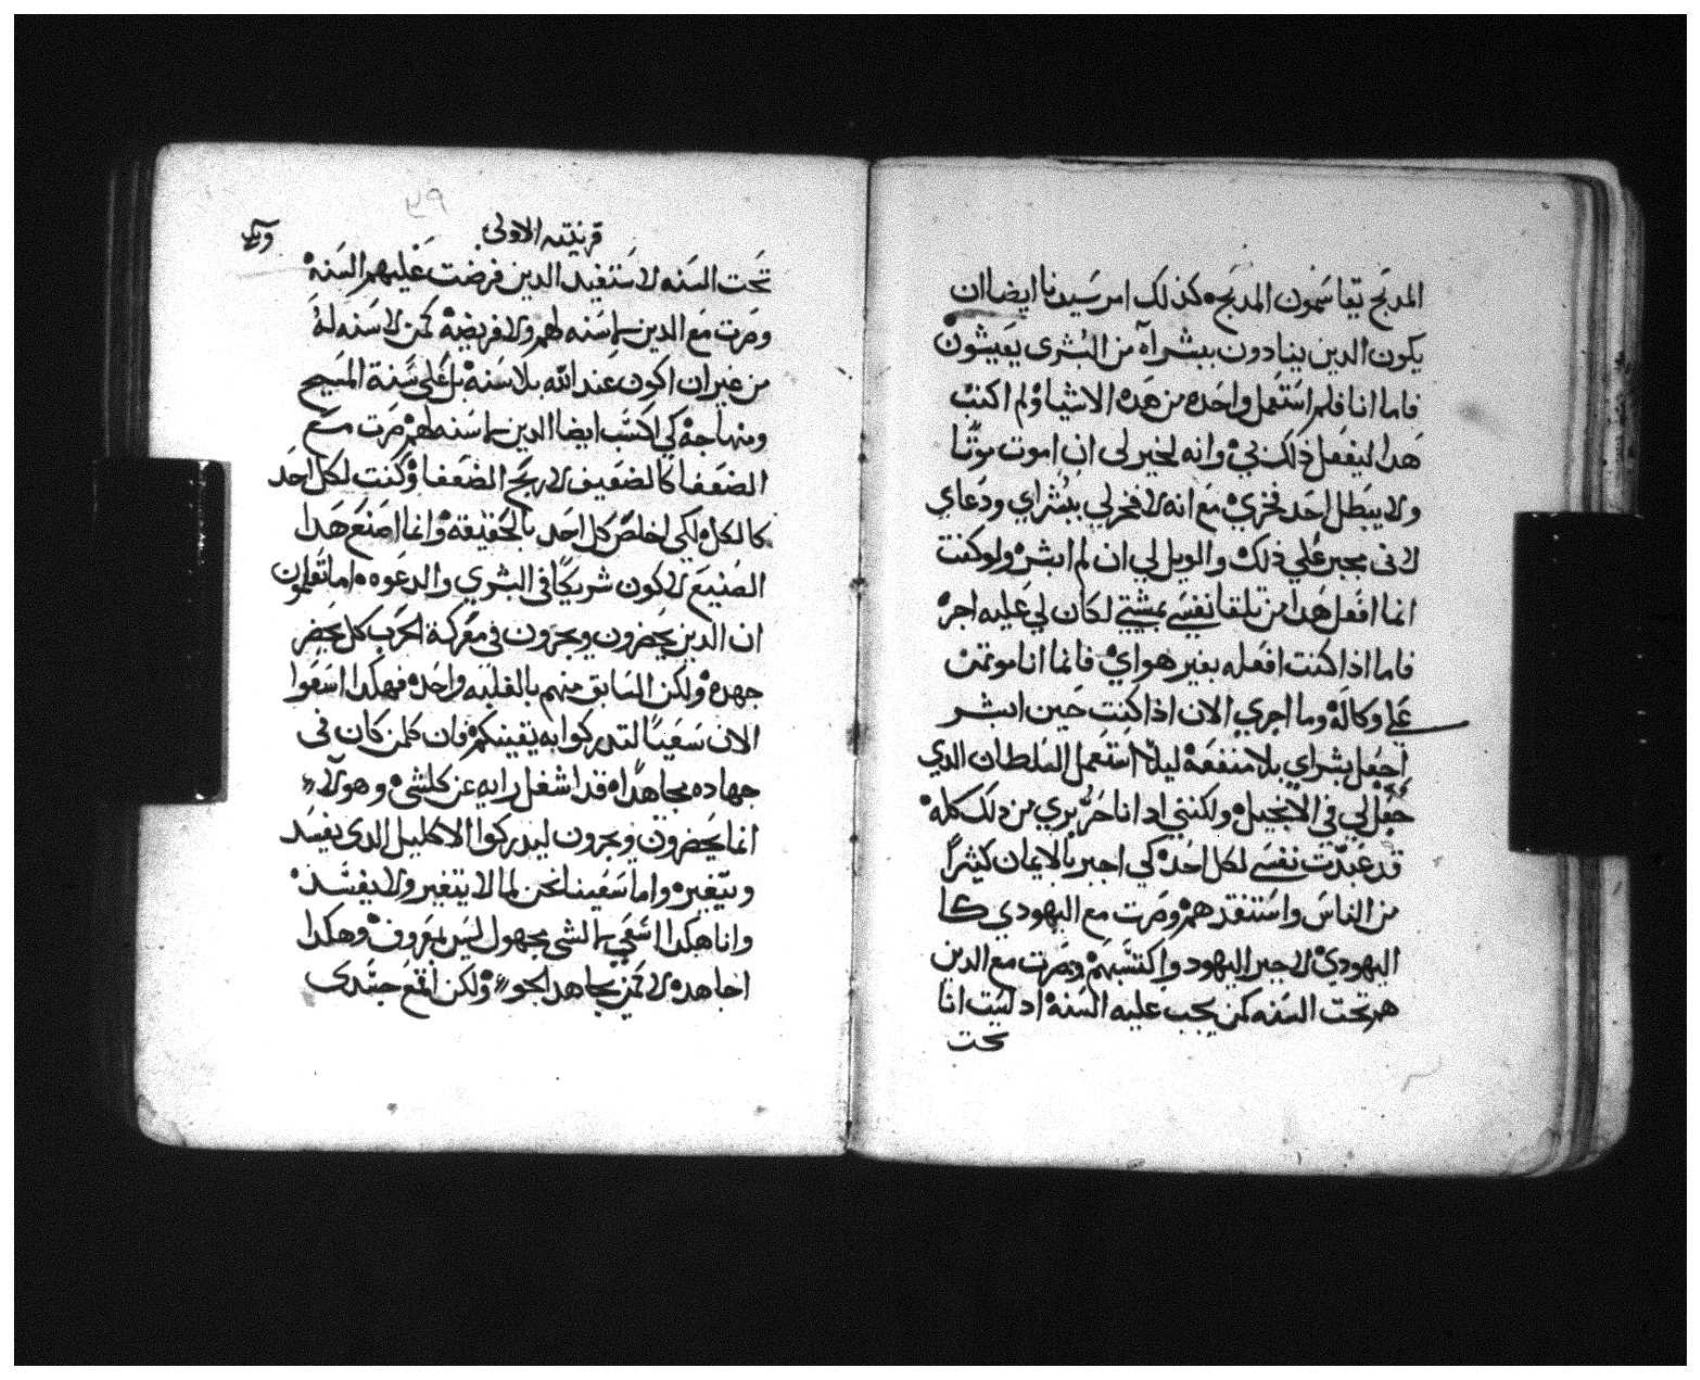 المدبح يتقاسمون المدبحه كذلك امر سيدنا ايضا ان
يكون الدين ينادون ببشراه من البشرى يعيشون
فاما انا فلم استعمل واحده من هده الاشيا ولم اكتب
هدا ليفعل ذلك بي وانه لخير لي ان اموت موتًا
ولا يبطل احد فخري مع انه لا فخر لي ببشراي ودعاي
لاني مجبر على ذلك والويل لي ان لم ابشر ولو كنت
انما افعل هدا من تلقا نفسي بمشيتي لكان لي عليه اجر
فاما اذا كنت افعله بغير هواي فانما انا موتمن
على وكاله وما اجري الان اذا كنت حين ابشر
اجعل بشراي بلا منفعه ليلا استعمل السلطان الدي
جعل لي في الانجيل ولكنني اد انا حر بري من دلك كله
قد عبدت نفسي لكل احد كي اجبر بالايمان كثيرًا
من الناس واستنقدهم وصرت مع اليهودي كا
اليهودي لاجبر اليهود واكتسبهم وصرت مع الدين
هم تحت السنه كمن يجب عليه السنه اد لست انا
تحت
٥٩
قرنتيه الاولى
تحت السنه لاستفيد الدين فرضت عليهم السنه
وصرت مع الدين لا سنه لهم ولا فريضه كمن لا سنه له
من غير ان اكون عند الله بلا سنه بل على سنة المسيح
ومنهاجه كي اكتسب ايضا الدين لا سنه لهم صرت مع
الضعفا كالضعيف لاربح الضعفا وكنت لكل احد
كالكل لكي اخلص كل احد بالحقيقه وانما اصنع هدا
الصنيع لاكون شريكًا في البشري والدعوه اما تعلمون
ان الدين يحضرون ويجرون في معركة الحرب كل يحضر
جهده ولكن السابق منهم بالغلبه واحد فهكدا اسعوا
الان سعيًا لتدركوا به بغيتكم فان كلمن كان في
جهاده مجاهدًا قد اشغل رايه عن كلشي وهولاء
انما يحضرون ويجرون ليدركوا الاكليل الدى يفسد
ويتغير واما سعينا نحن لما لا يتغير ولا يفسد
وانا هكدا اسعي لا لشي مجهول ليس بمعروف وهكدا
اجاهد لا كمن يجاهد الجو ولكن اقمع جسدى